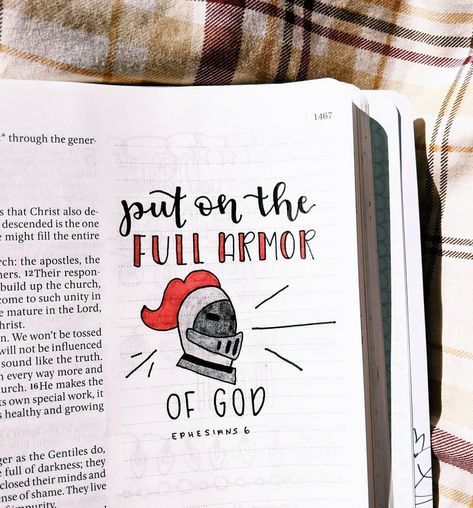 1467
* through the gener-
s that Christ also de-
descended is the one
might fill the entire
rch: the apostles, the
ners. 12Their respon-
build up the church,
come to such unity in
e mature in the Lord,
hrist.
n. We won't be tossed
will not be influenced
sound like the truth.
n every way more and
urch. 16He makes the
ts own special work, it
s healthy and growing
ger as the Gentiles do,
e full of darkness; they
closed their minds and
ense of shame. They live
of impurity.
put on the
FULL ARMOR
OF GOD
EPHESIANS 6